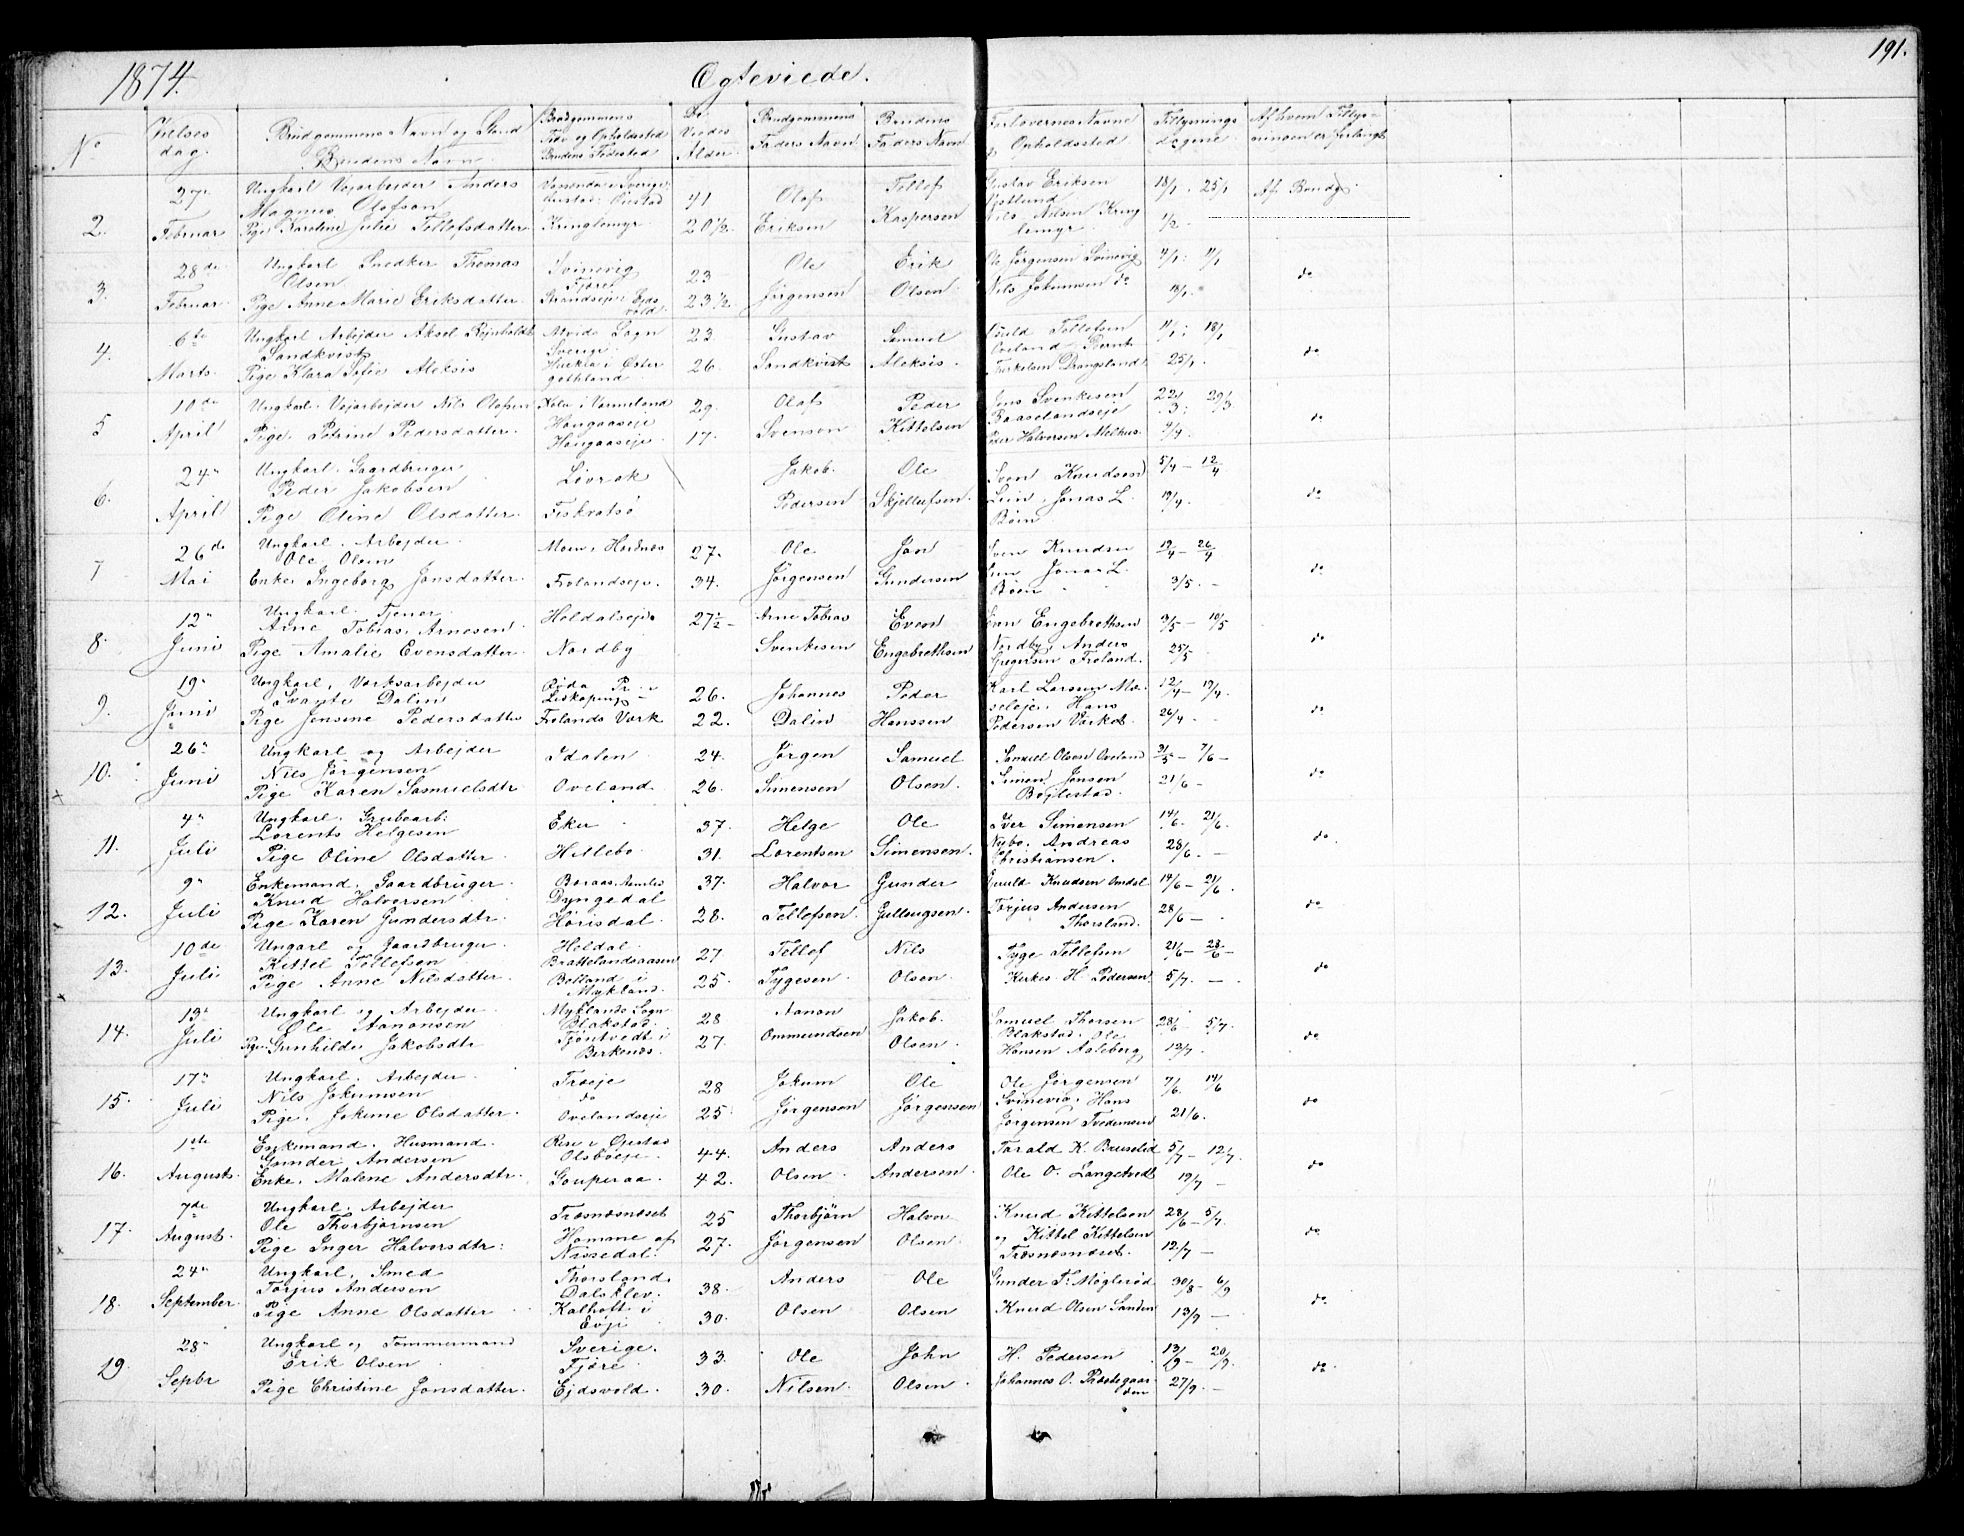 191.
1874. Egteviede.
No Vielses dag. Brudgommens Navn og Stand Brudens Navn. Brudgommens Føde og Opholdssted Brudens Fødested De Viedes Alder Brudgommens Faders Navn Brudens Faders Navn Forlovernes Navne og Opholdssted Tillysnings Dagene Af hvem Tillysningen er forlangt
2. 27de Februar Ungkarl Vejarbejder Anders Magnus Olofson
Pige Karoline Julie Tellefsdatter Kringlemyr 41 20 1/2 Olof Eriksen Tellef Kaspersen Gustav Eriksen Nils Nilsen Kringlemyr 18/1. 25/1 1/2. Af Brudg.
3. 28de Februar Ungkarl Snedker Thomas Olsen
Pige Anne Marie Eriksdatter Svinevig Fjære 23 23 1/2 Ole Jørgensen Erik Olsen Ole Jørgensen Svinevig Nils Jokumsen do do
4. 6te Marts. Ungkarl Arbejder Aksel Rejnholdt Sandkvist
Pige Klara Sofie Aleksis Sogn Sverige i Østergothland 23 26. Gustav Sandkvist Samuel Aleksis. Tellefsen Oveland Bernt Torkelsen Drangsland 11/1: 18/1 25/1. do
5 10de April Ungkarl. Vejarbejder Nils Olofsen
Pige. Petrine Pedersdatter. i Vermeland Haugaaseje Haugaaseje 29. 17. Olof Svenson Peder Kittelsen Jens Svenkesen Baaselandseje Peder Halvorsen Melhus. 22/3: 29/3 do
6. 24de April Ungkarl. Gaardbruger Peder Jakobsen
Pige Oline Olsdatter. Løvrak Fiskvatsø Jakob. Pedersen Ole Skjellufsen. Sven Knudsen Lein. Jonas L. Bøen 5/4 - 12/4 19/4. do
7 26de Mai Ungkarl. Arbejder Ole Olsen
Enke Ingeborg Jonsdatter. Moen i Herdnes Frolandseje. 27. 34. Ole Jørgensen Jon Gundersen Sven Knudsen Lein Jonas L. Bøen 19/4 - 26/4 3/5. - do
8. 12te Juni Ungkarl. Tjener. Arne Tobias Arnesen.
Pige Amalie Evensdatter. Heldalseje Nordby 27 1/2 - Arne Tobias Svenkesen Even Engebrethsen Even Engebrethsen Nordby, Anders Gregersen Froland. 3/5 - 10/5 25/5 do
9. 19de Juni Ungkarl, Værksarbejder Svante Dalin
Pige Jensine Pedersdatter Frolands Værk 26. 22. Johannes Dalin Peder Hanssen Karl Larsen Hans Pedersen Værket. 12/4 - 19/4 26/4. - do
10. 26de Juni Ungkarl og Arbejder Nils Jørgensen
Pige Karen Samuelsdtr Idalen Oveland. 24. 26. Jørgen Simensen Samuel Olsen. Samuel Olsen Oveland Simen Jensen Bøylestad. 31/5 - 7/6 - 21/6 - do
11. 4de Juli Ungkarl. Grubearb: Lorents Helgesen
Pige Oline Olsdatter. Eker Hellebo 37. 31. Helge Lorentsen Ole Simensen. Iver Simensen Nybo, Andreas Christiansen. 14/6. 21/6. 28/6. - do.
12. 9de Juli Enkemand. Gaardbruger. Knud Halvorsen
Pige Karen Gundersdtr. Dyngedal Hørisdal 37. 28. Halvor Tellefsen. Gunder Gullaugsen. Knudsen Omdal Torjus Andersen Thorsland. 14/6 - 21/6. 28/6 - do
13. 10de Juli Ungarl og Gaardbruger. Kittel Tellefsen
Pige Anne Nilsdatter. Heldal. Brattelandsaasen Botland i Mykland. 27 25. Tellef Tygesen Nils Olsen. Tyge Tellefsen H. Pedersen 21/6 - 28/6 - 5/7. - do
14. 13de Juli Ungkarl og Arbejder. Ole Aanonsen
Pige. Gunhilde Jakobsdtr Myklands Sogn Blakstad. Tjøntvedt i Birkenes. 28 27. Aanon Ommundsen Jakob. Olsen. Samuel Thorsen Blakstad. Ole Hansen Aaleberg 28/6 5/7. 12/7. do
15. 17de Juli Ungkarl. Arbejder. Nils Jokumsen
Pige. Jokime Olsdatter. Træje do Ovelandseje 28 25 Jokum Jørgensen Ole Jørgensen Ole Jørgensen Svinevig, Hans Jørgensen Tvedemoen 7/6. 14/6 21/6. do
16. 1ste August. Enkemand. Husmand. Gunder Andersen
Enke. Malene Andersdtr. Rise i Øiestad Olsbøeje. Souperaa. 44. 42. Anders Olsen Anders Andersen. Tarald K. Bruselid Ole O. Langetvedt 5/7 - 12/7. 19/7 - do
17. 7de August. Ungkarl. Arbejder Ole Thorbjørnsen
Pige Inger Halvorsdtr: Træsnæsnæset Homme af Nissedal. 25 27. Thorbjørn Jørgensen Halvor Olsen. Knud Kittelsen og Kittel Kittelsen Træsnæsnæset. 28/6 - 5/7. 12/7 - do
18. 24de September. Ungkarl. Smed Torjus Andersen
Pige Anne Olsdatter Thorsland. Dalsklev. Kalhoft i Evje 38. 30. Anders Olsen Ole Olsen Gunder T. Møglerød Knud Olsen Sanden 30/8 - 6/9 13/9 - do
19. 28de Sepbr Ungkarl og Tømmermand Erik Olsen
Pige Christine Jonsdatter. Sverige. Fjære. Ejdsvold. 33. 30. Ole Nilsen. John Olsen. H. Pedersen Johannes O. Præstegaarden 13/9 - 20/9. 27/9. - do.